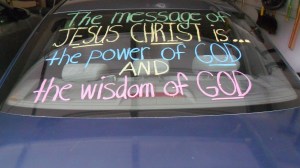 The message of
JESUS CHRIST is...
the power of GOD
AND
the wisdom of GOD